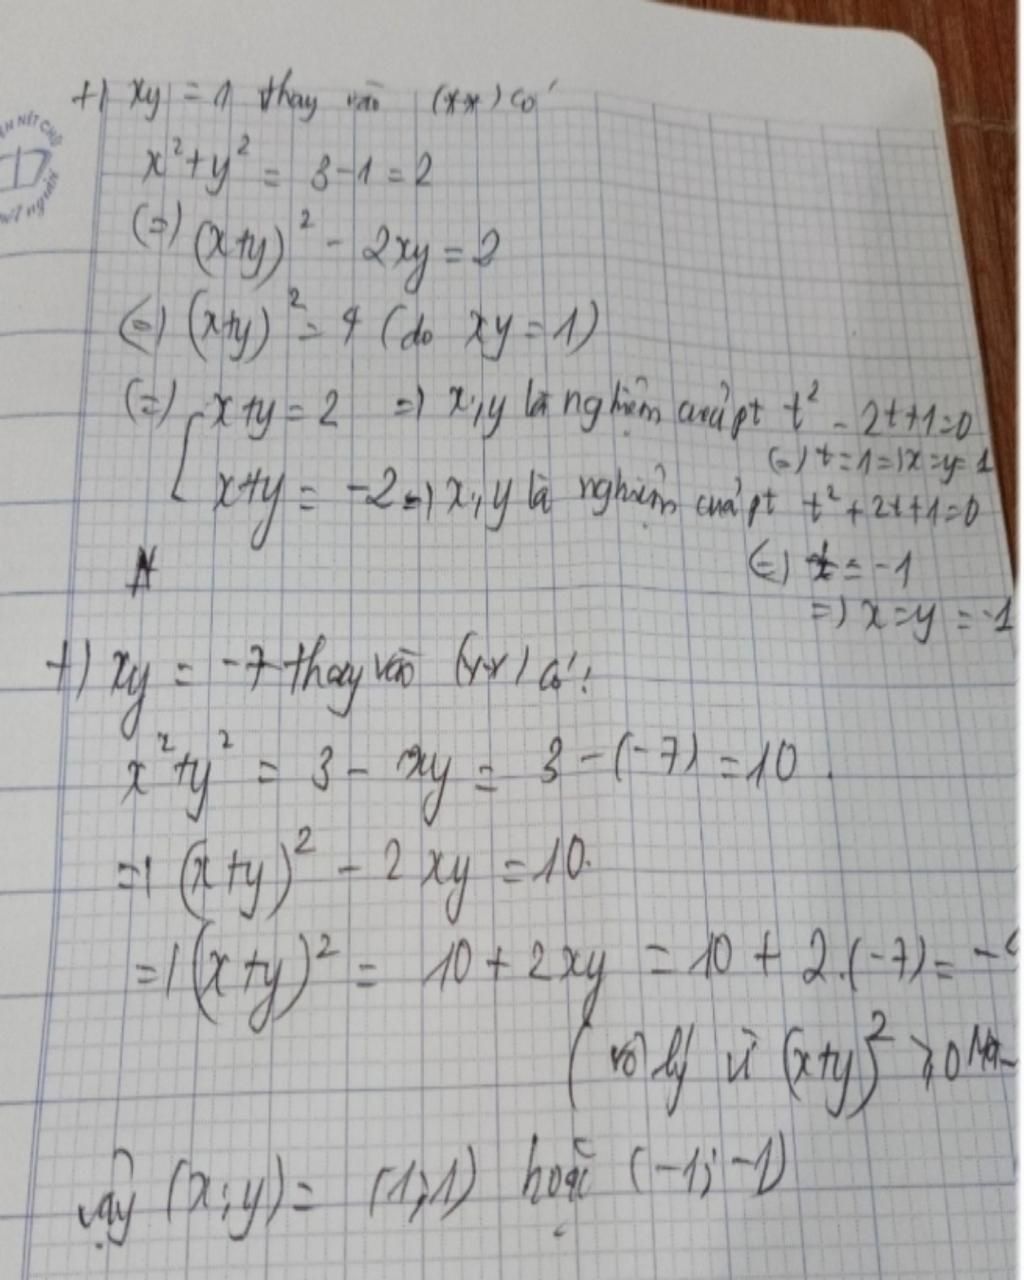 +) xy = 1 thay vào (**) có
x² + y² = 3 - 1 = 2
(=) (x+y)² - 2xy = 2
(=) (x+y)² = 4 (do xy = 1)
(=) [ x+y = 2 =) x,y là nghiệm cuả pt t² - 2t+1=0
(=) t=1 =) x=y=1
x+y = -2 =) x,y là nghiệm cuả pt t² + 2t+1=0
(=) t = -1
=) x=y = -1
+) xy = -7 thay vào (**) có:
x² + y² = 3 - xy = 3 - (-7) = 10.
=) (x+y)² - 2xy = 10.
=) (x+y)² = 10 + 2xy = 10 + 2.(-7) = -
(vô lý vì (x+y)² ⩾ 0
Vậy (x;y) = (1;1) hoặc (-1;-1)